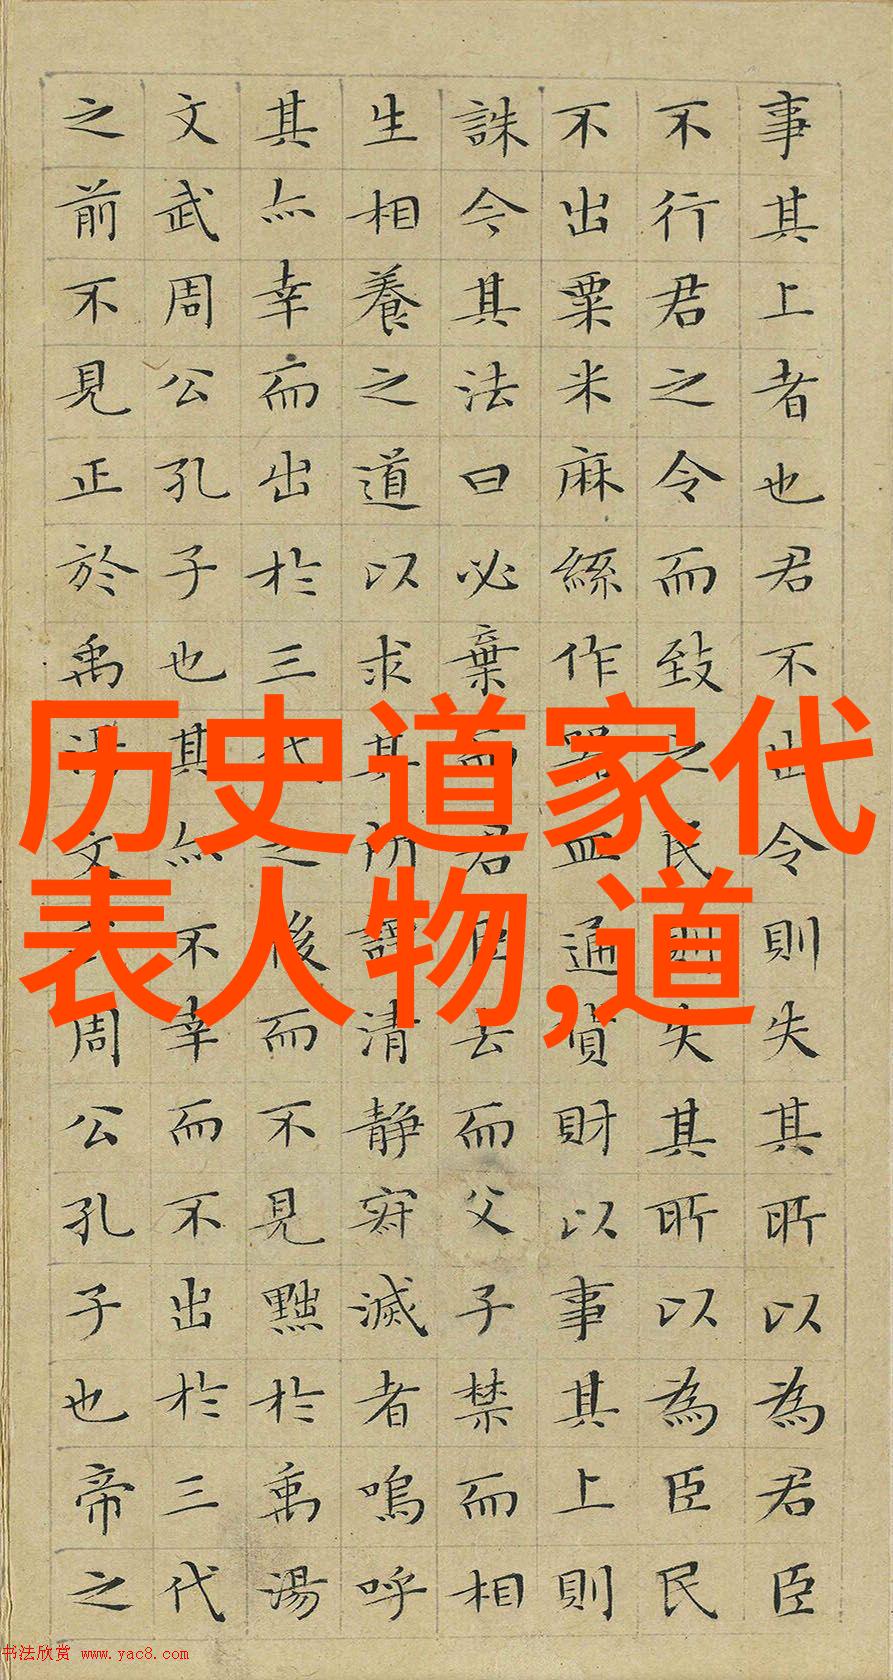 事其上者也君不出令則失其所以為君臣
不行君之令而致之民則失其所以為臣民
不出粟米麻絲作器皿通貨財以事其上則
誅今其法曰必棄而君臣去而父子禁而相
生相養之道以求其所謂清静寂滅者嗚呼
其亦幸而出於三代之後而不見黜於禹湯
文武周公孔子也其亦不幸而不出於三代
之前不見正於禹湯文武周公孔子也帝之
历史道家代
表人物,道
书法欣赏 www.yac8.com